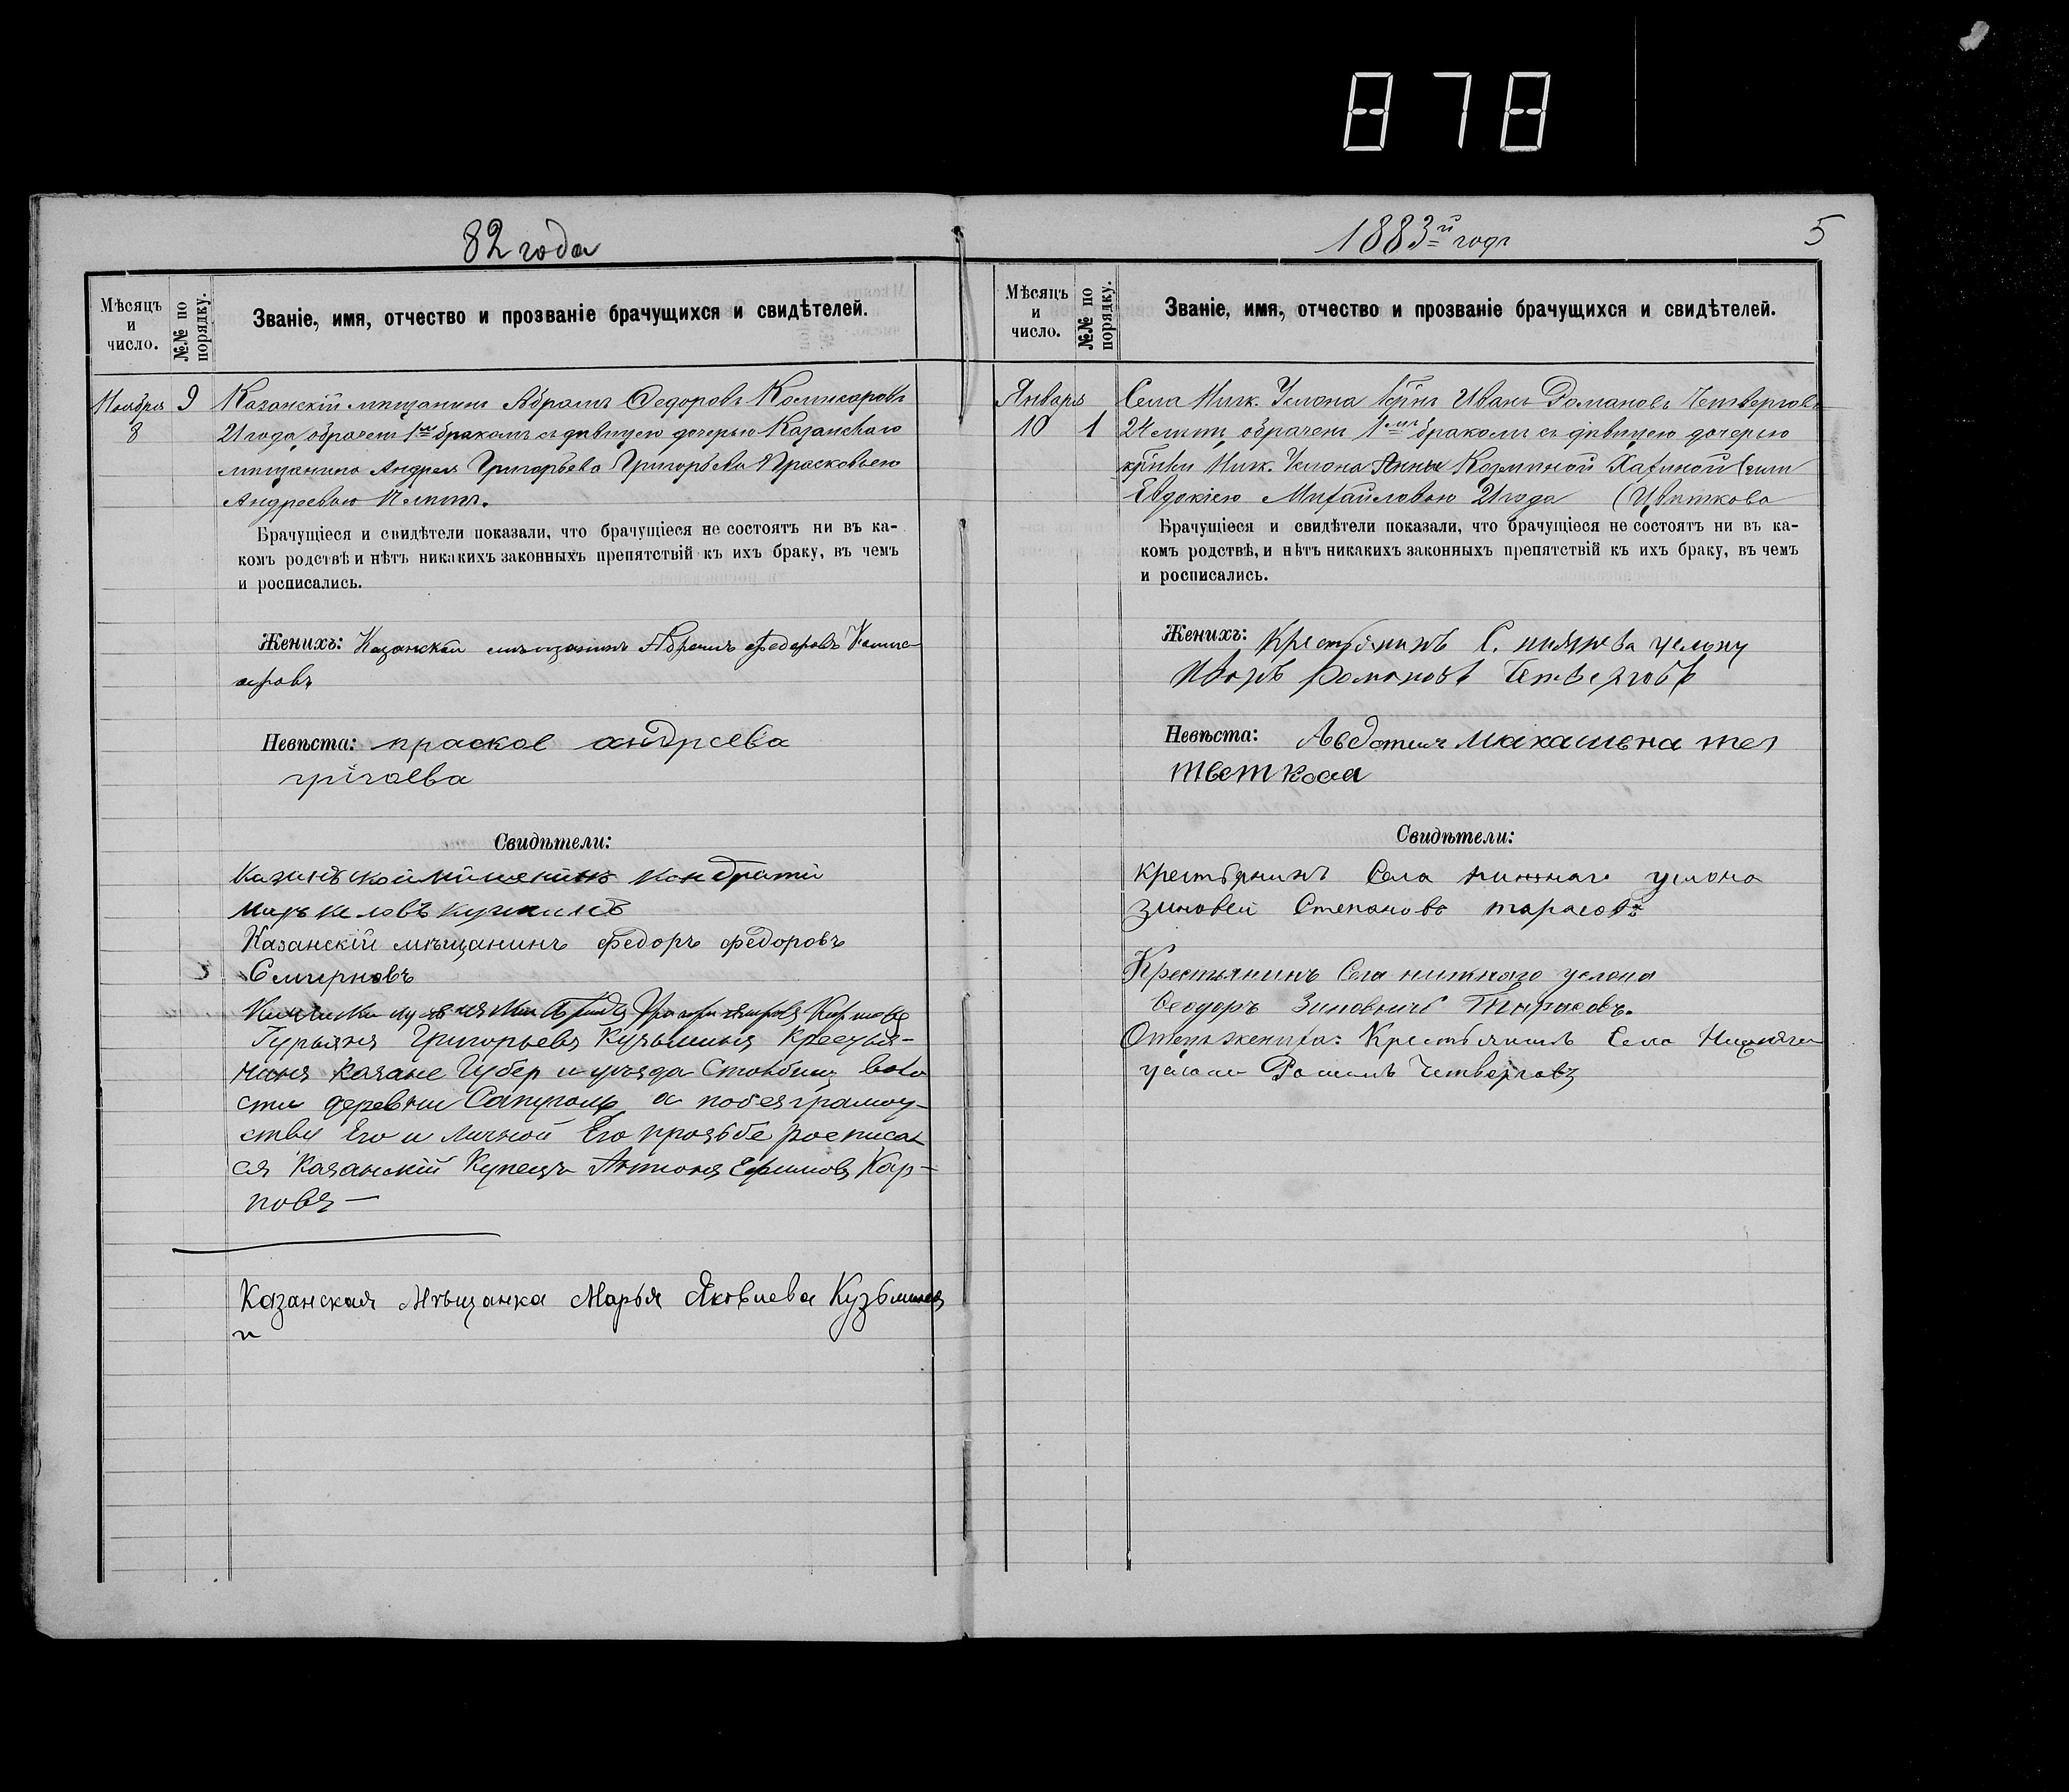 878
82 года
Мѣсяцъ и число.
№№ по порядку.
Званіе, имя, отчество и прозваніе брачущихся и свидѣтелей.
Ноября 9 Казанскій мѣщанинъ Абрамъ Федоровъ Комисаровъ
8 21 года обрачен 1мъ бракомъ съ дѣвицею дочерью Казанскаго
мѣщанина Андрея Григорьева Григорьева Прасковьею
Андреевою лѣтъ.
Брачущіеся и свидѣтели показали, что брачущіеся не состоятъ ни въ ка-
комъ родствѣ и нѣтъ никакихъ законныхъ препятствій къ ихъ браку, въ чемъ
и росписались.
Женихъ: Казанскій мѣщанинъ Абрамъ Федоровъ Комис
аровъ
Невѣста: праскове андреева
григоева
Свидѣтели:
кондратій
Казанскій мѣщанинъ Федоръ Федоровъ
Смирновъ
Гурьяня Григорьевя Кузьминя Крестья-
ниня Казане Губер и уѣзда Столбищ воло
сти деревни а побезграмот-
ству Его и личной Его прозьбе росписал
ся Казанскій Купецъ Антоня Ефимовя Кар-
повя —
Казанская Мѣщанка Марья Яковлева Кузьмина
1883й годъ
5
Мѣсяцъ и число.
№№ по порядку.
Званіе, имя, отчество и прозваніе брачущихся и свидѣтелей.
Января Села Ниж. Услона Иванъ Романовъ Четверговъ
10 1 24 лѣтъ обрачен 1мъ бракомъ съ дѣвицею дочерью
Ниж. Услона Анны Козминой (или
Евдокіею Михайловою 21 года (Цвѣткова
Брачущіеся и свидѣтели показали, что брачущіеся не состоятъ ни въ ка-
комъ родствѣ, и нѣтъ никакихъ законныхъ препятствій къ ихъ браку, въ чемъ
и росписались.
Женихъ: Крестьянинъ С.
Романовъ
Невѣста: Авдотия
Свидѣтели:
крестьянинъ Села нижнаго услона
зиновей Степановъ тарасовъ
Крестьянинъ Села нижнаго услона
Феодоръ
Отецъ жениха: Крестьянинъ Села
Четверговъ